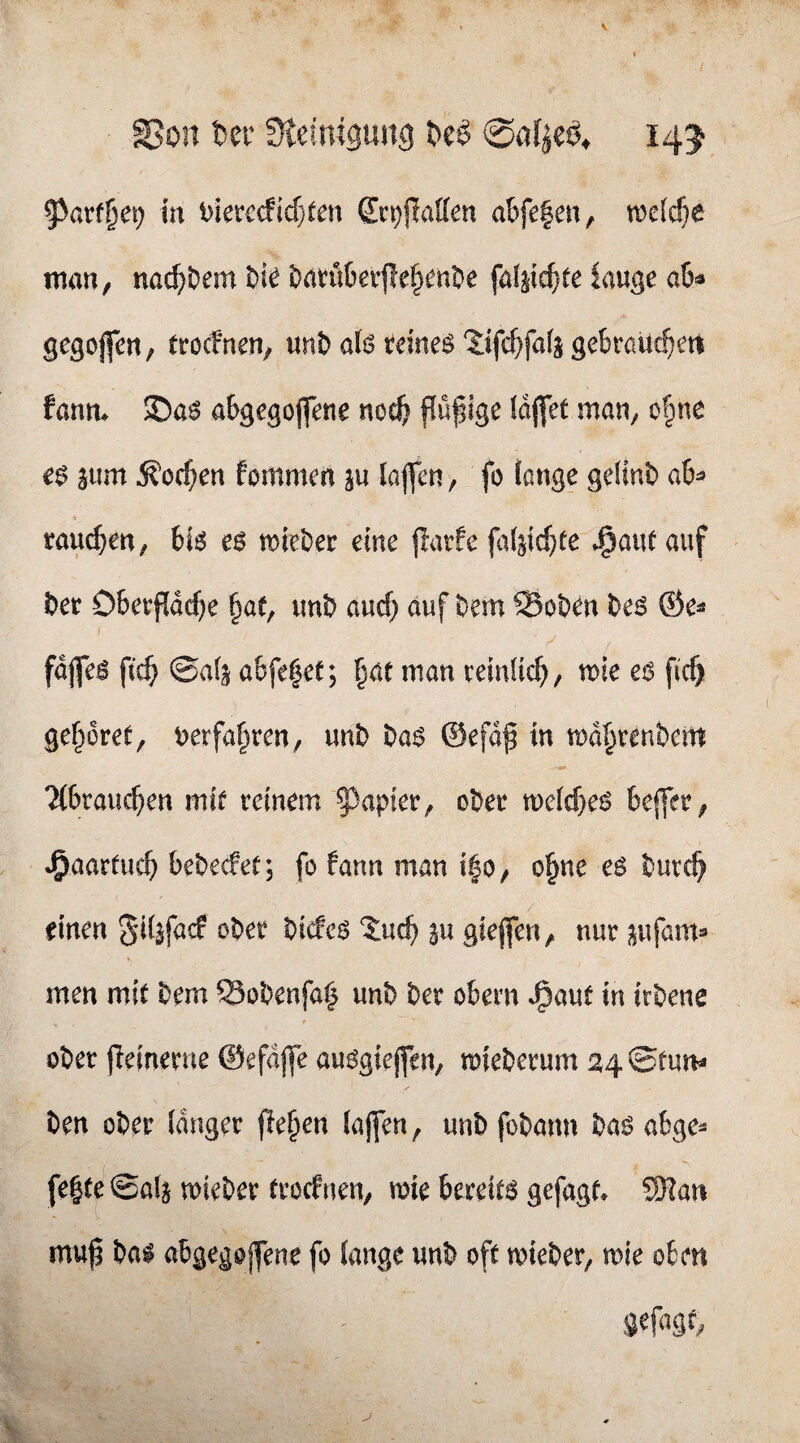 Von der Reinigung des Salzes. 143
Parthey in viereckichten Crystallen absetzen, welche
man, nachdem die darüberstehende salzichte lauge ab-
gegossen, trocknen, und als reines Tischsalz gebrauchen
kann. Das abgegossene noch flüßige lässet man, ohne
es zum Kochen kommen zu lassen, so lange gelind ab-
rauchen, bis es wieder eine starke salzichte Haut auf
der Oberfläche hat, und auch auf dem Boden des Ge-
fässes sich Salz absetzet; hat man reinlich, wie es sich
gehöret, verfahren, und das Gefäß in währendem
Abrauchen mit reinem Papier, oder welches besser,
Haartuch bedecket; so kann man itzo, ohne es durch
einen Filzsack oder dickes Tuch zu giessen, nur zusam-
men mit dem Bodensatz und der obern Haut in irdene
oder steinerne Gefässe ausgiessen, wiederum 24 Stun-
den oder länger stehen lassen, und sodann das abge-
setzte Salz wieder trocknen, wie bereits gesagt. Man
muß das abgegossene so lange und oft wieder, wie oben
gesagt,